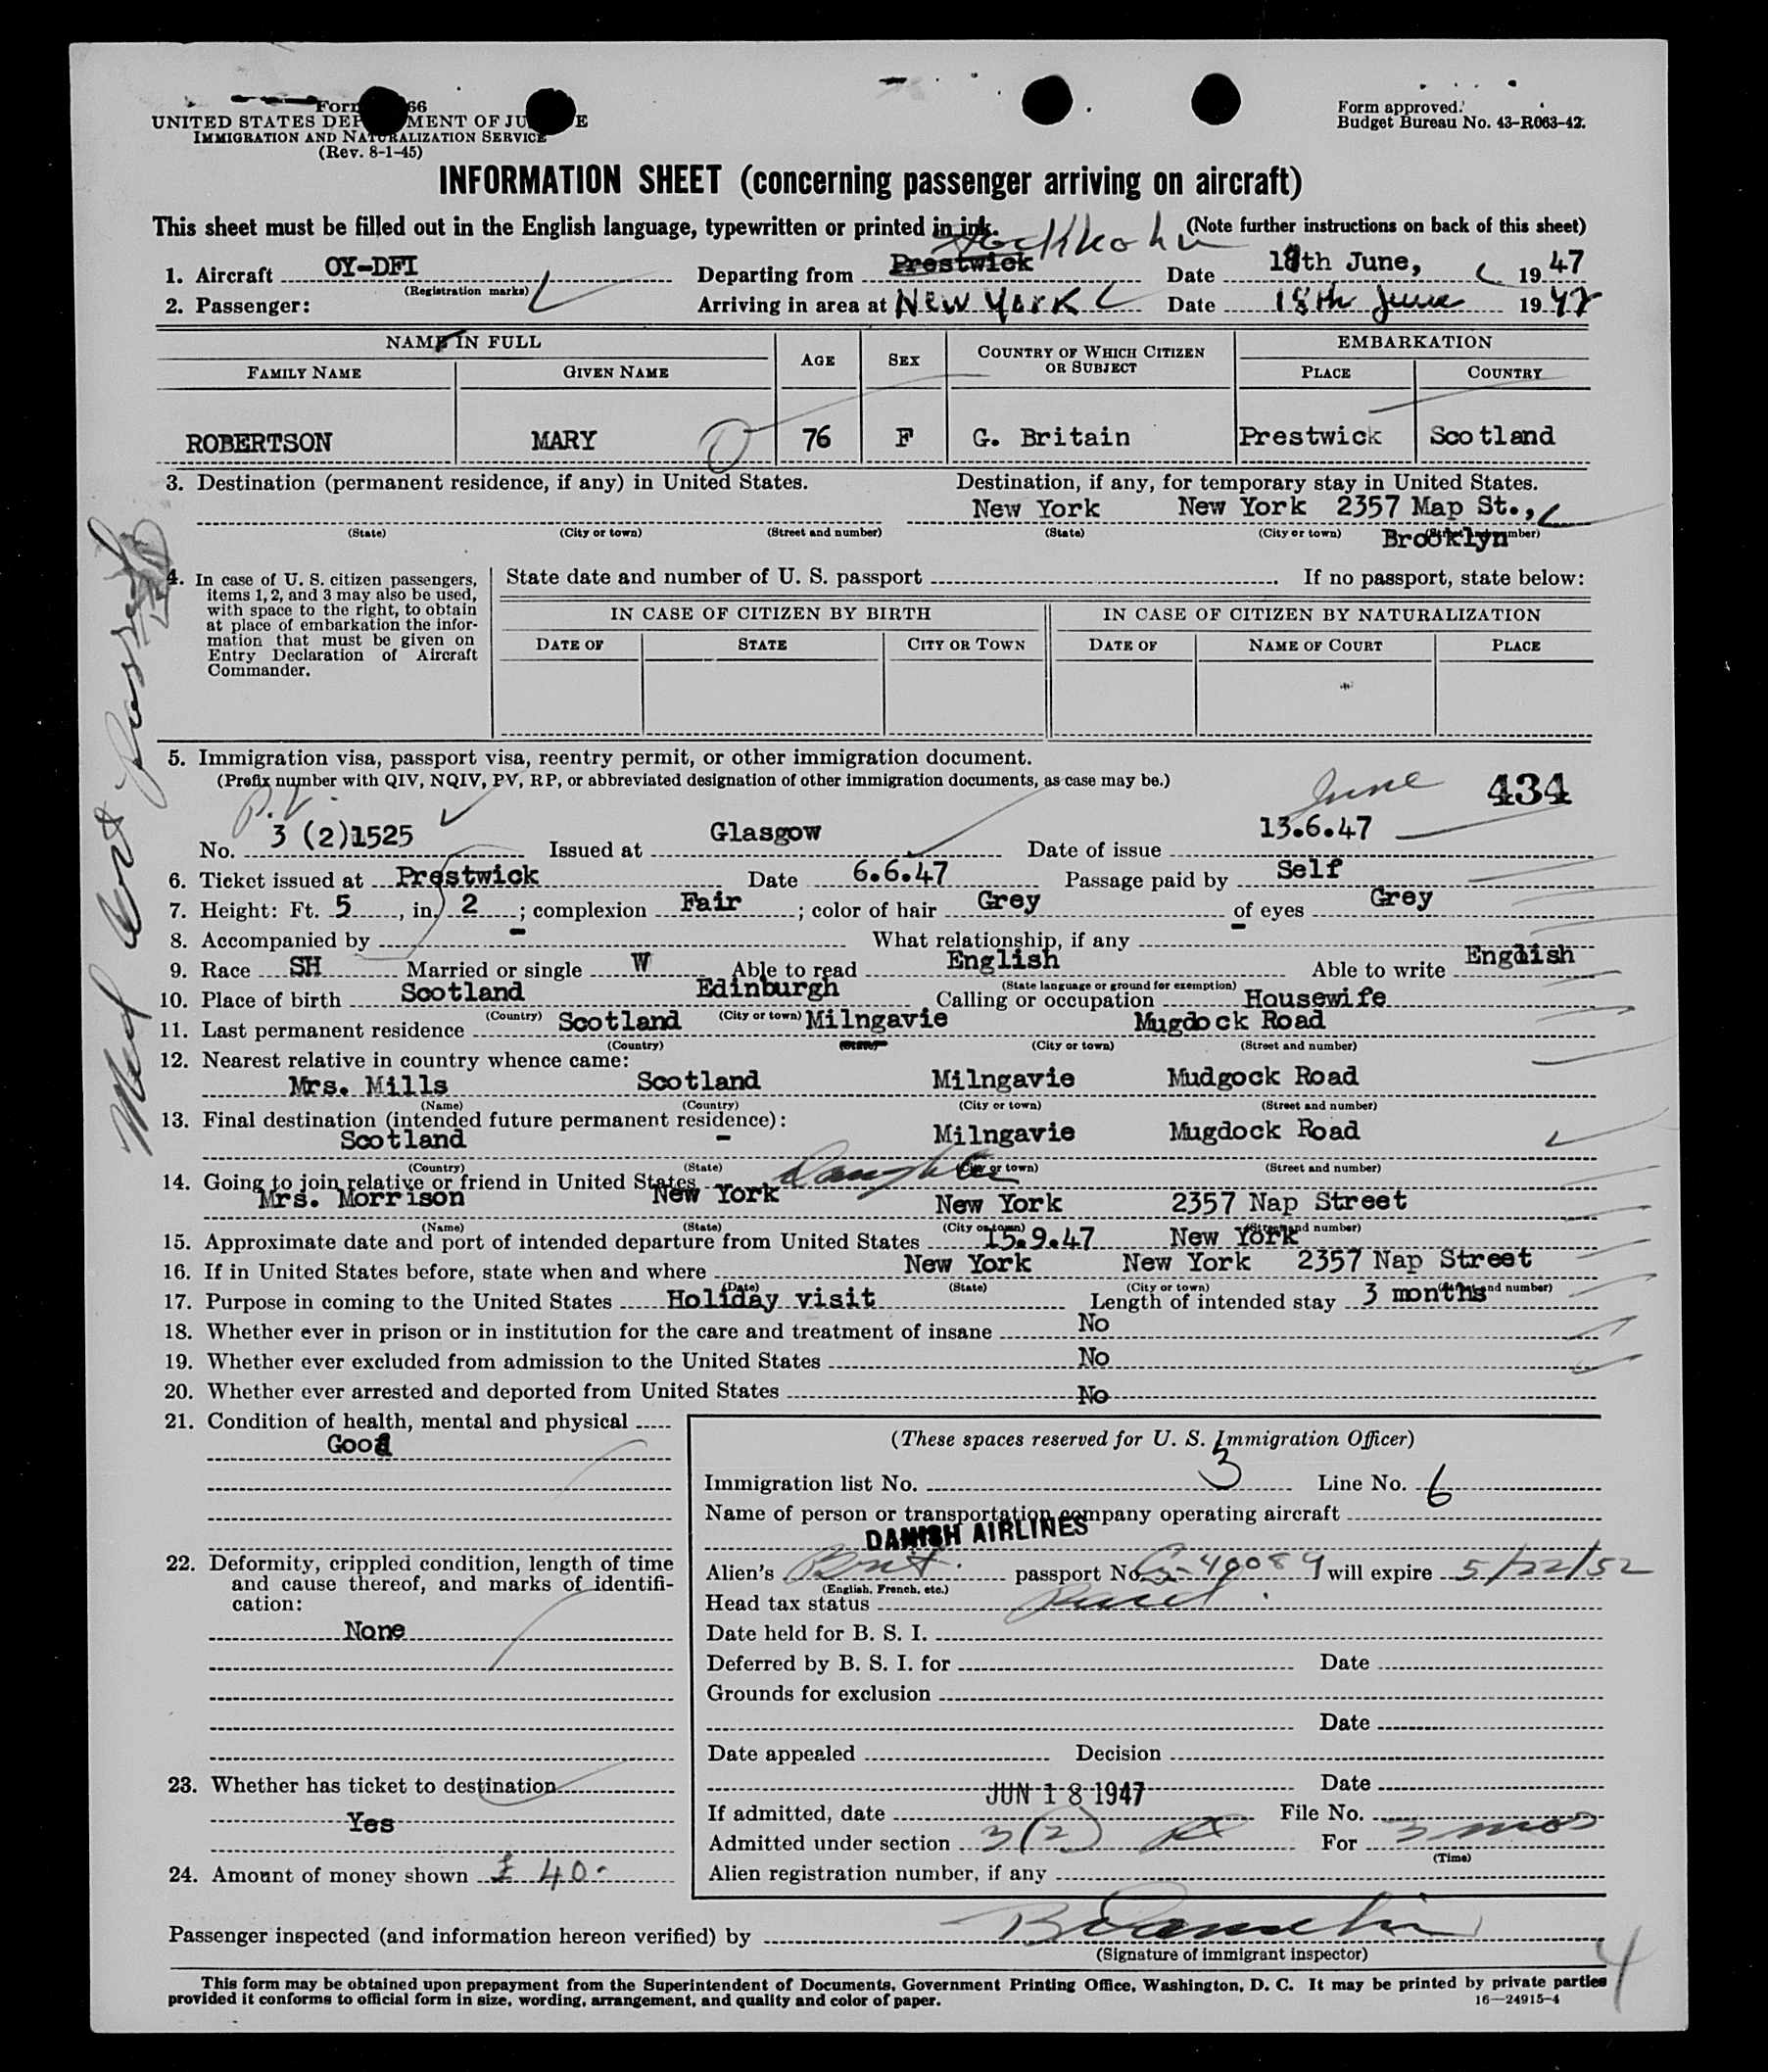 Form 66
UNITED STATES DEP MENT OF JU E
IMMIGRATION AND NATURALIZATION SERVICE
(Rev. 8-1-45)
Form approved.
Budget Bureau No. 43-R063-42.
INFORMATION SHEET (concerning passenger arriving on aircraft)
This sheet must be filled out in the English language, typewritten or printed in ink. (Note further instructions on back of this sheet)
Stockholm
1. Aircraft OY-DFI Departing from Prestwick Date 18th June, 1947
(Registration marks)
2. Passenger: Arriving in area at New York Date 18th June 1947
NAME IN FULL AGE SEX COUNTRY OF WHICH CITIZEN OR SUBJECT EMBARKATION
FAMILY NAME GIVEN NAME PLACE COUNTRY
ROBERTSON MARY 76 F G. Britain Prestwick Scotland
3. Destination (permanent residence, if any) in United States. Destination, if any, for temporary stay in United States.
New York New York 2357 Map St.,
(State) (City or town) (Street and number) (State) (City or town) (Street and number)
Brooklyn
4. In case of U. S. citizen passengers, items 1, 2, and 3 may also be used, with space to the right, to obtain at place of embarkation the information that must be given on Entry Declaration of Aircraft Commander.
State date and number of U. S. passport . If no passport, state below:
IN CASE OF CITIZEN BY BIRTH IN CASE OF CITIZEN BY NATURALIZATION
DATE OF STATE CITY OR TOWN DATE OF NAME OF COURT PLACE
Med Cert.
5. Immigration visa, passport visa, reentry permit, or other immigration document.
(Prefix number with QIV, NQIV, PV, RP, or abbreviated designation of other immigration documents, as case may be.)
P.V. June 434
No. 3 (2)1525 Issued at Glasgow Date of issue 13.6.47
6. Ticket issued at Prestwick Date 6.6.47 Passage paid by Self
7. Height: Ft. 5, in. 2; complexion Fair; color of hair Grey of eyes Grey
8. Accompanied by - What relationship, if any -
9. Race SH Married or single W Able to read English Able to write English
(State language or ground for exemption)
10. Place of birth Scotland Edinburgh Calling or occupation Housewife
(Country) (City or town)
11. Last permanent residence Scotland Milngavie Mugdock Road
(Country) (State) (City or town) (Street and number)
12. Nearest relative in country whence came:
Mrs. Mills Scotland Milngavie Mudgock Road
(Name) (Country) (City or town) (Street and number)
13. Final destination (intended future permanent residence):
Scotland - Milngavie Mugdock Road
(Country) (State) (City or town) (Street and number)
14. Going to join relative or friend in United States Daughter
Mrs. Morrison New York New York 2357 Nap Street
(Name) (State) (City or town) (Street and number)
15. Approximate date and port of intended departure from United States 15.9.47 New York
16. If in United States before, state when and where New York New York 2357 Nap Street
(Date) (State) (City or town) (Street and number)
17. Purpose in coming to the United States Holiday visit Length of intended stay 3 months
18. Whether ever in prison or in institution for the care and treatment of insane No
19. Whether ever excluded from admission to the United States No
20. Whether ever arrested and deported from United States No
21. Condition of health, mental and physical
Good
22. Deformity, crippled condition, length of time and cause thereof, and marks of identification:
None
23. Whether has ticket to destination
Yes
24. Amount of money shown £ 40-
(These spaces reserved for U. S. Immigration Officer)
Immigration list No. 3 Line No. 6
Name of person or transportation company operating aircraft
DANISH AIRLINES
Alien's Brit. passport No. C-40089 will expire 5/22/52
(English, French, etc.)
Head tax status
Date held for B. S. I.
Deferred by B. S. I. for Date
Grounds for exclusion
Date
Date appealed Decision
Date
If admitted, date JUN 18 1947 File No.
Admitted under section 3(2) For 3 mos
(Time)
Alien registration number, if any
Passenger inspected (and information hereon verified) by
(Signature of immigrant inspector)
4
This form may be obtained upon prepayment from the Superintendent of Documents, Government Printing Office, Washington, D. C. It may be printed by private parties
provided it conforms to official form in size, wording, arrangement, and quality and color of paper. 16—24915-4